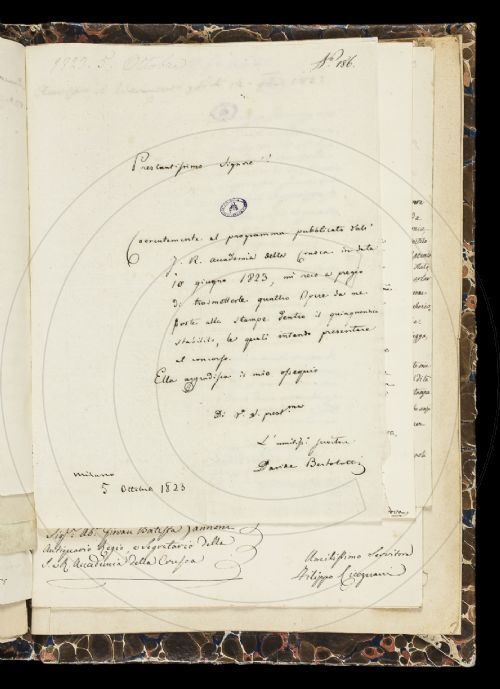 1823. 5. Ottobre
N.º 186.
Prestantissimo Signore
Coerentemente al programma pubblicato dall'
I. R. Accademia della Crusca in data
10 giugno 1823, mi reco a pregio
di trasmetterle quattro Opere da me
poste alle stampe dentro il quinquennio
stabilito, le quali intendo presentare
al concorso.
Ella aggradisca il mio ossequio
Di V. S. prest.ma
L'umiliss.o servitore
Davide Bertolotti
Milano
5 Ottobre 1823
Sig.r Ab. Giovan Batista Zannoni
Antiquario Regio, e Segretario della
I. e R. Accademia della Crusca
Umilissimo Servitore
Filippo